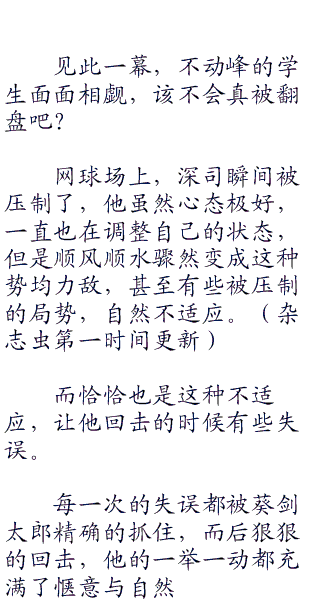 见此一幕，不动峰的学
生面面相觑，该不会真被翻
盘吧？
网球场上，深司瞬间被
压制了，他虽然心态极好，
一直也在调整自己的状态，
但是顺风顺水骤然变成这种
势均力敌，甚至有些被压制
的局势，自然不适应。（杂
志虫第一时间更新）
而恰恰也是这种不适
应，让他回击的时候有些失
误。
每一次的失误都被葵剑
太郎精确的抓住，而后狠狠
的回击，他的一举一动都充
满了惬意与自然